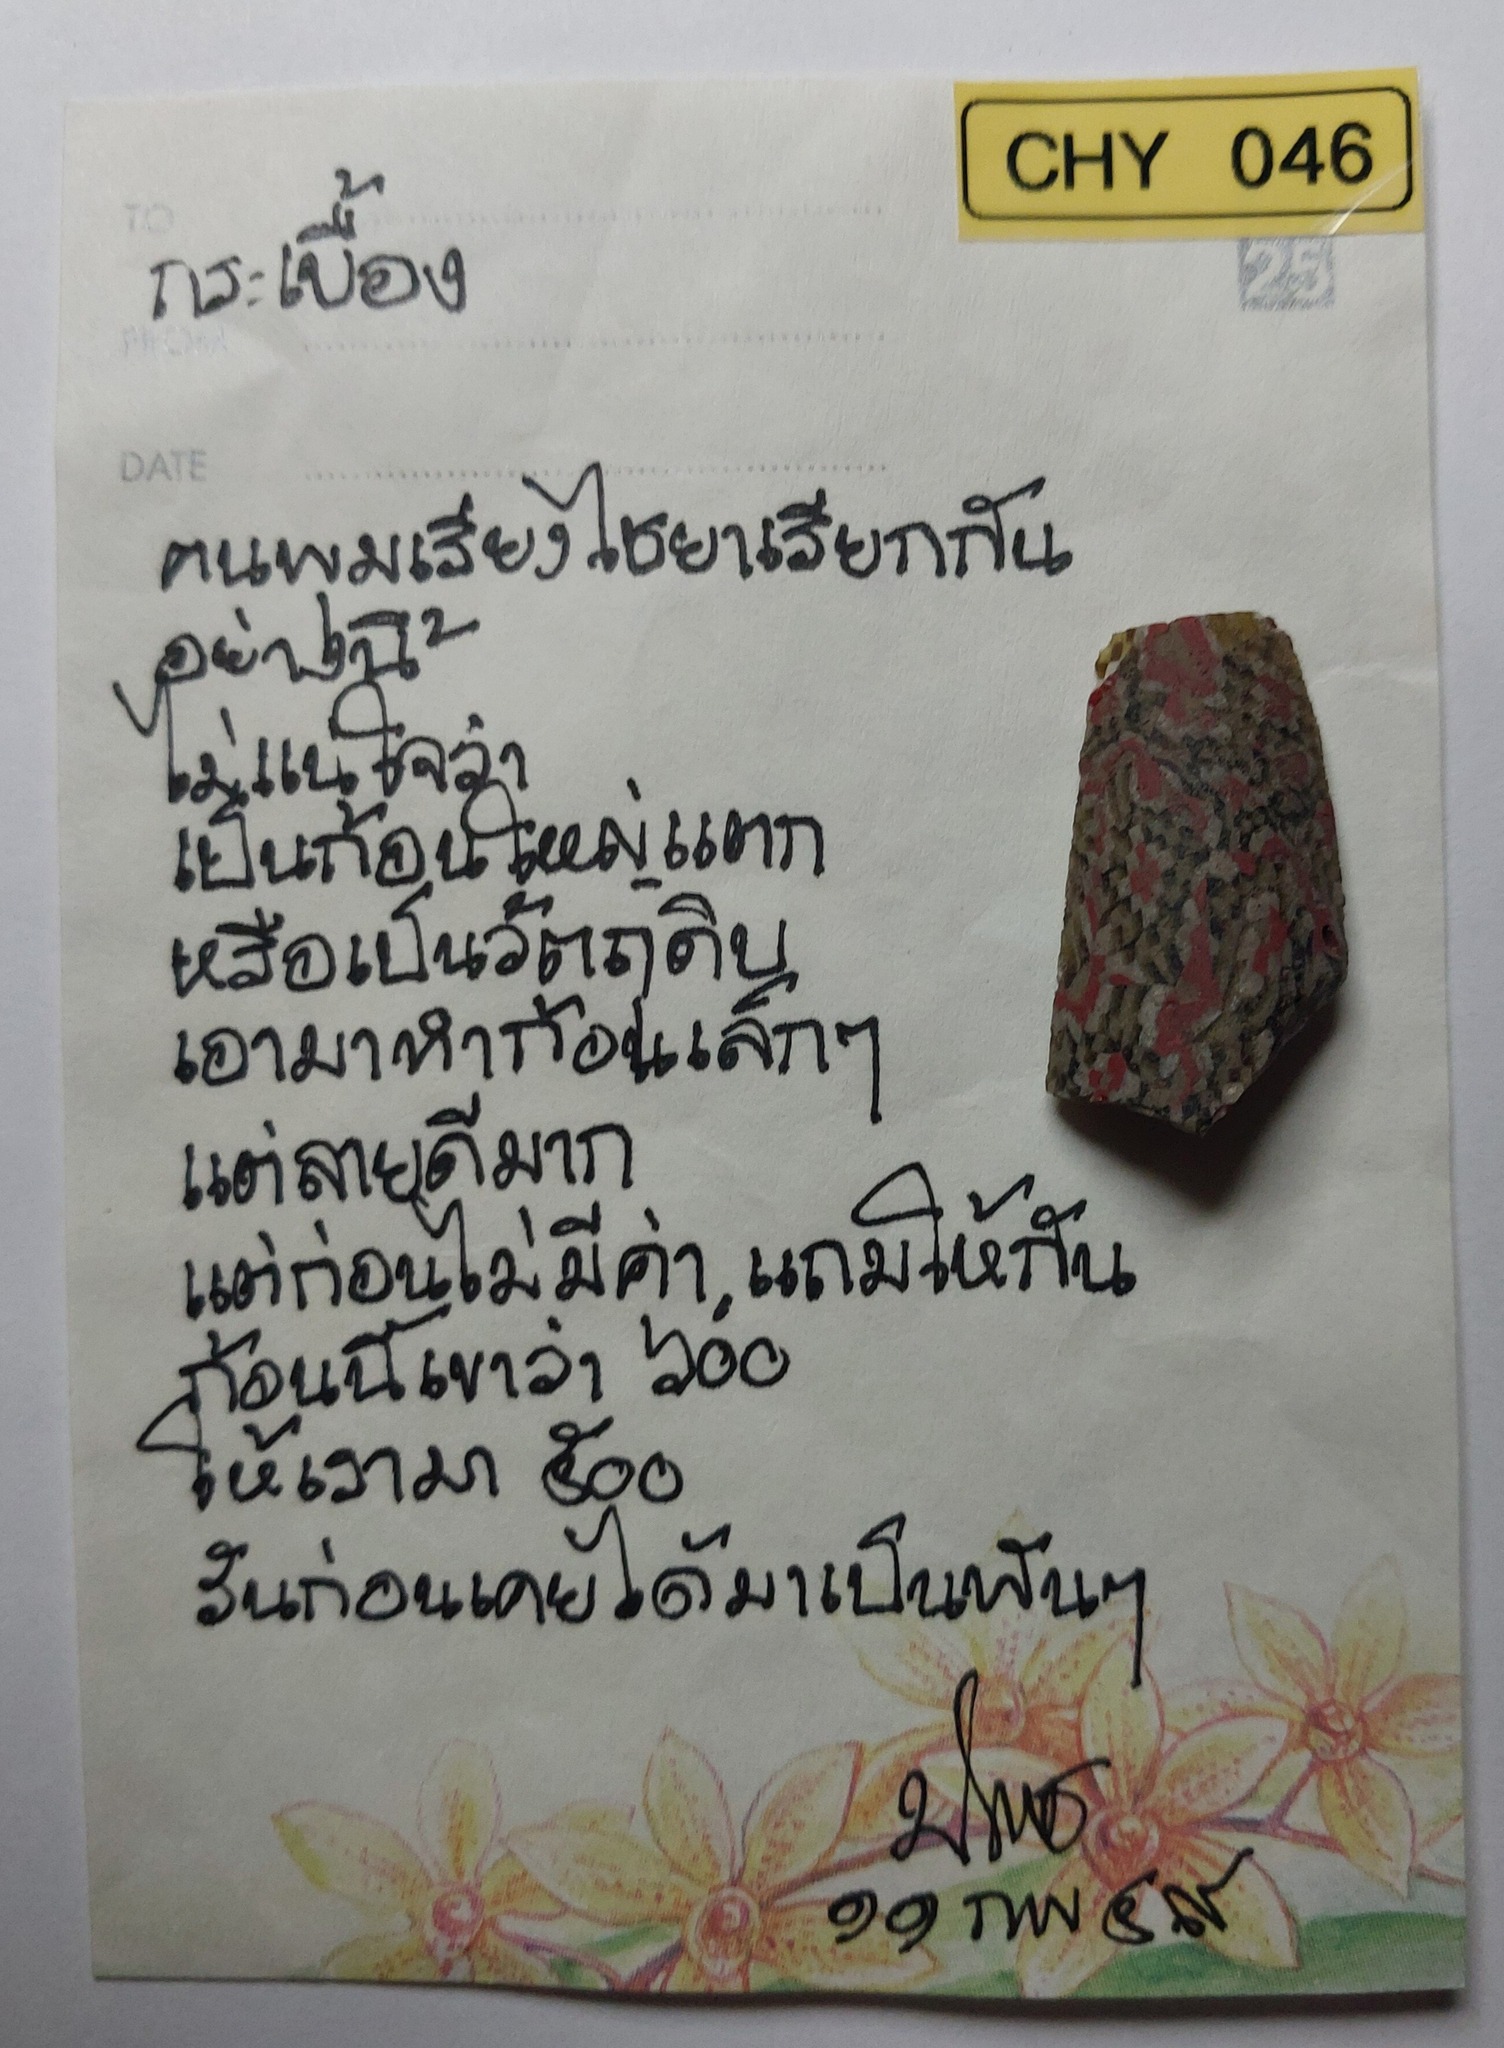 CHY 046
TO
25
กระเบื้อง
DATE
คนพุมเรียงไชยาเรียกกัน
อย่างนี้
ไม่แน่ใจว่า
เป็นก้อนใหญ่แตก
หรือเป็นวัตถุดิบ
เอามาทำก้อนเล็กๆ
แต่ลายดีมาก
แต่ก่อนไม่มีค่า แถมให้กัน
ก้อนนี้เขาว่า ๖๐๐
ให้เรามา ๕๐๐
วันก่อนเคยได้มาเป็นพันๆ
๑๑ กพ ๔๙